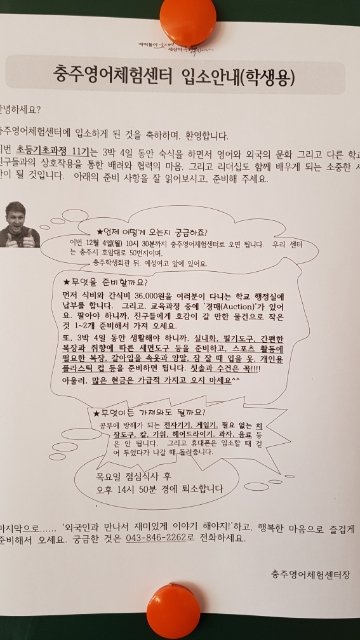 충주영어체험센터 입소안내(학생용)
안녕하세요?
충주영어체험센터에 입소하게 된 것을 축하하며, 환영합니다.
이번 초등기초과정 11기는 3박 4일 동안 숙식을 하면서 영어와 외국의 문화 그리고 다른 학교
친구들과의 상호작용을 통한 배려와 협력의 마음, 그리고 리더십도 함께 배우게 되는 소중한
이 될 것입니다. 아래의 준비 사항을 잘 읽어보시고, 준비해 주세요.
★언제 어떻게 오는지 궁금하죠?
이번 12월 4일(월) 10시 30분까지 충주영어체험센터로 오면 됩니다. 우리 센터
는 충주시 호암대로 50번지이며,
충주학생회관 뒤, 예성여고 앞에 있어요.
★무엇을 준비할까요?
먼저 식비와 간식비 36,000원을 여러분이 다니는 학교 행정실에
납부를 합니다. 그리고, 교육과정 중에 '경매(Auction)'가 있어
요. 팔아야 하니까, 친구들에게 호감이 갈 만한 물건으로 작은
것 1~2개 준비해서 가져 오세요.
또, 3박 4일 동안 생활해야 하니까, 실내화, 필기도구, 간편한
복장과 취향에 따른 세면도구 등을 준비하고, 스포츠 활동에
필요한 복장, 갈아입을 속옷과 양말, 잠 잘 때 입을 옷, 개인용
플라스틱 컵 등을 준비하면 됩니다. 칫솔과 수건은 꼭!!!!
아울러, 많은 현금은 가급적 가지고 오지 마세요^^
★무엇이든 가져와도 될까요?
공부에 방해가 되는 전자기기, 게임기, 필요 없는 화
장도구, 칼, 가위, 헤어드라이기, 과자, 음료 등
은 안 됩니다. 그리고 휴대폰은 입소할 때 걷
어 두었다가 나갈 때 돌려줍니다.
목요일 점심식사 후
오후 14시 50분 경에 퇴소합니다
마지막으로…… '외국인과 만나서 재미있게 이야기 해야지!'하고, 행복한 마음으로 즐겁게
준비해서 오세요. 궁금한 것은 043-846-2262로 전화하세요.
충주영어체험센터장